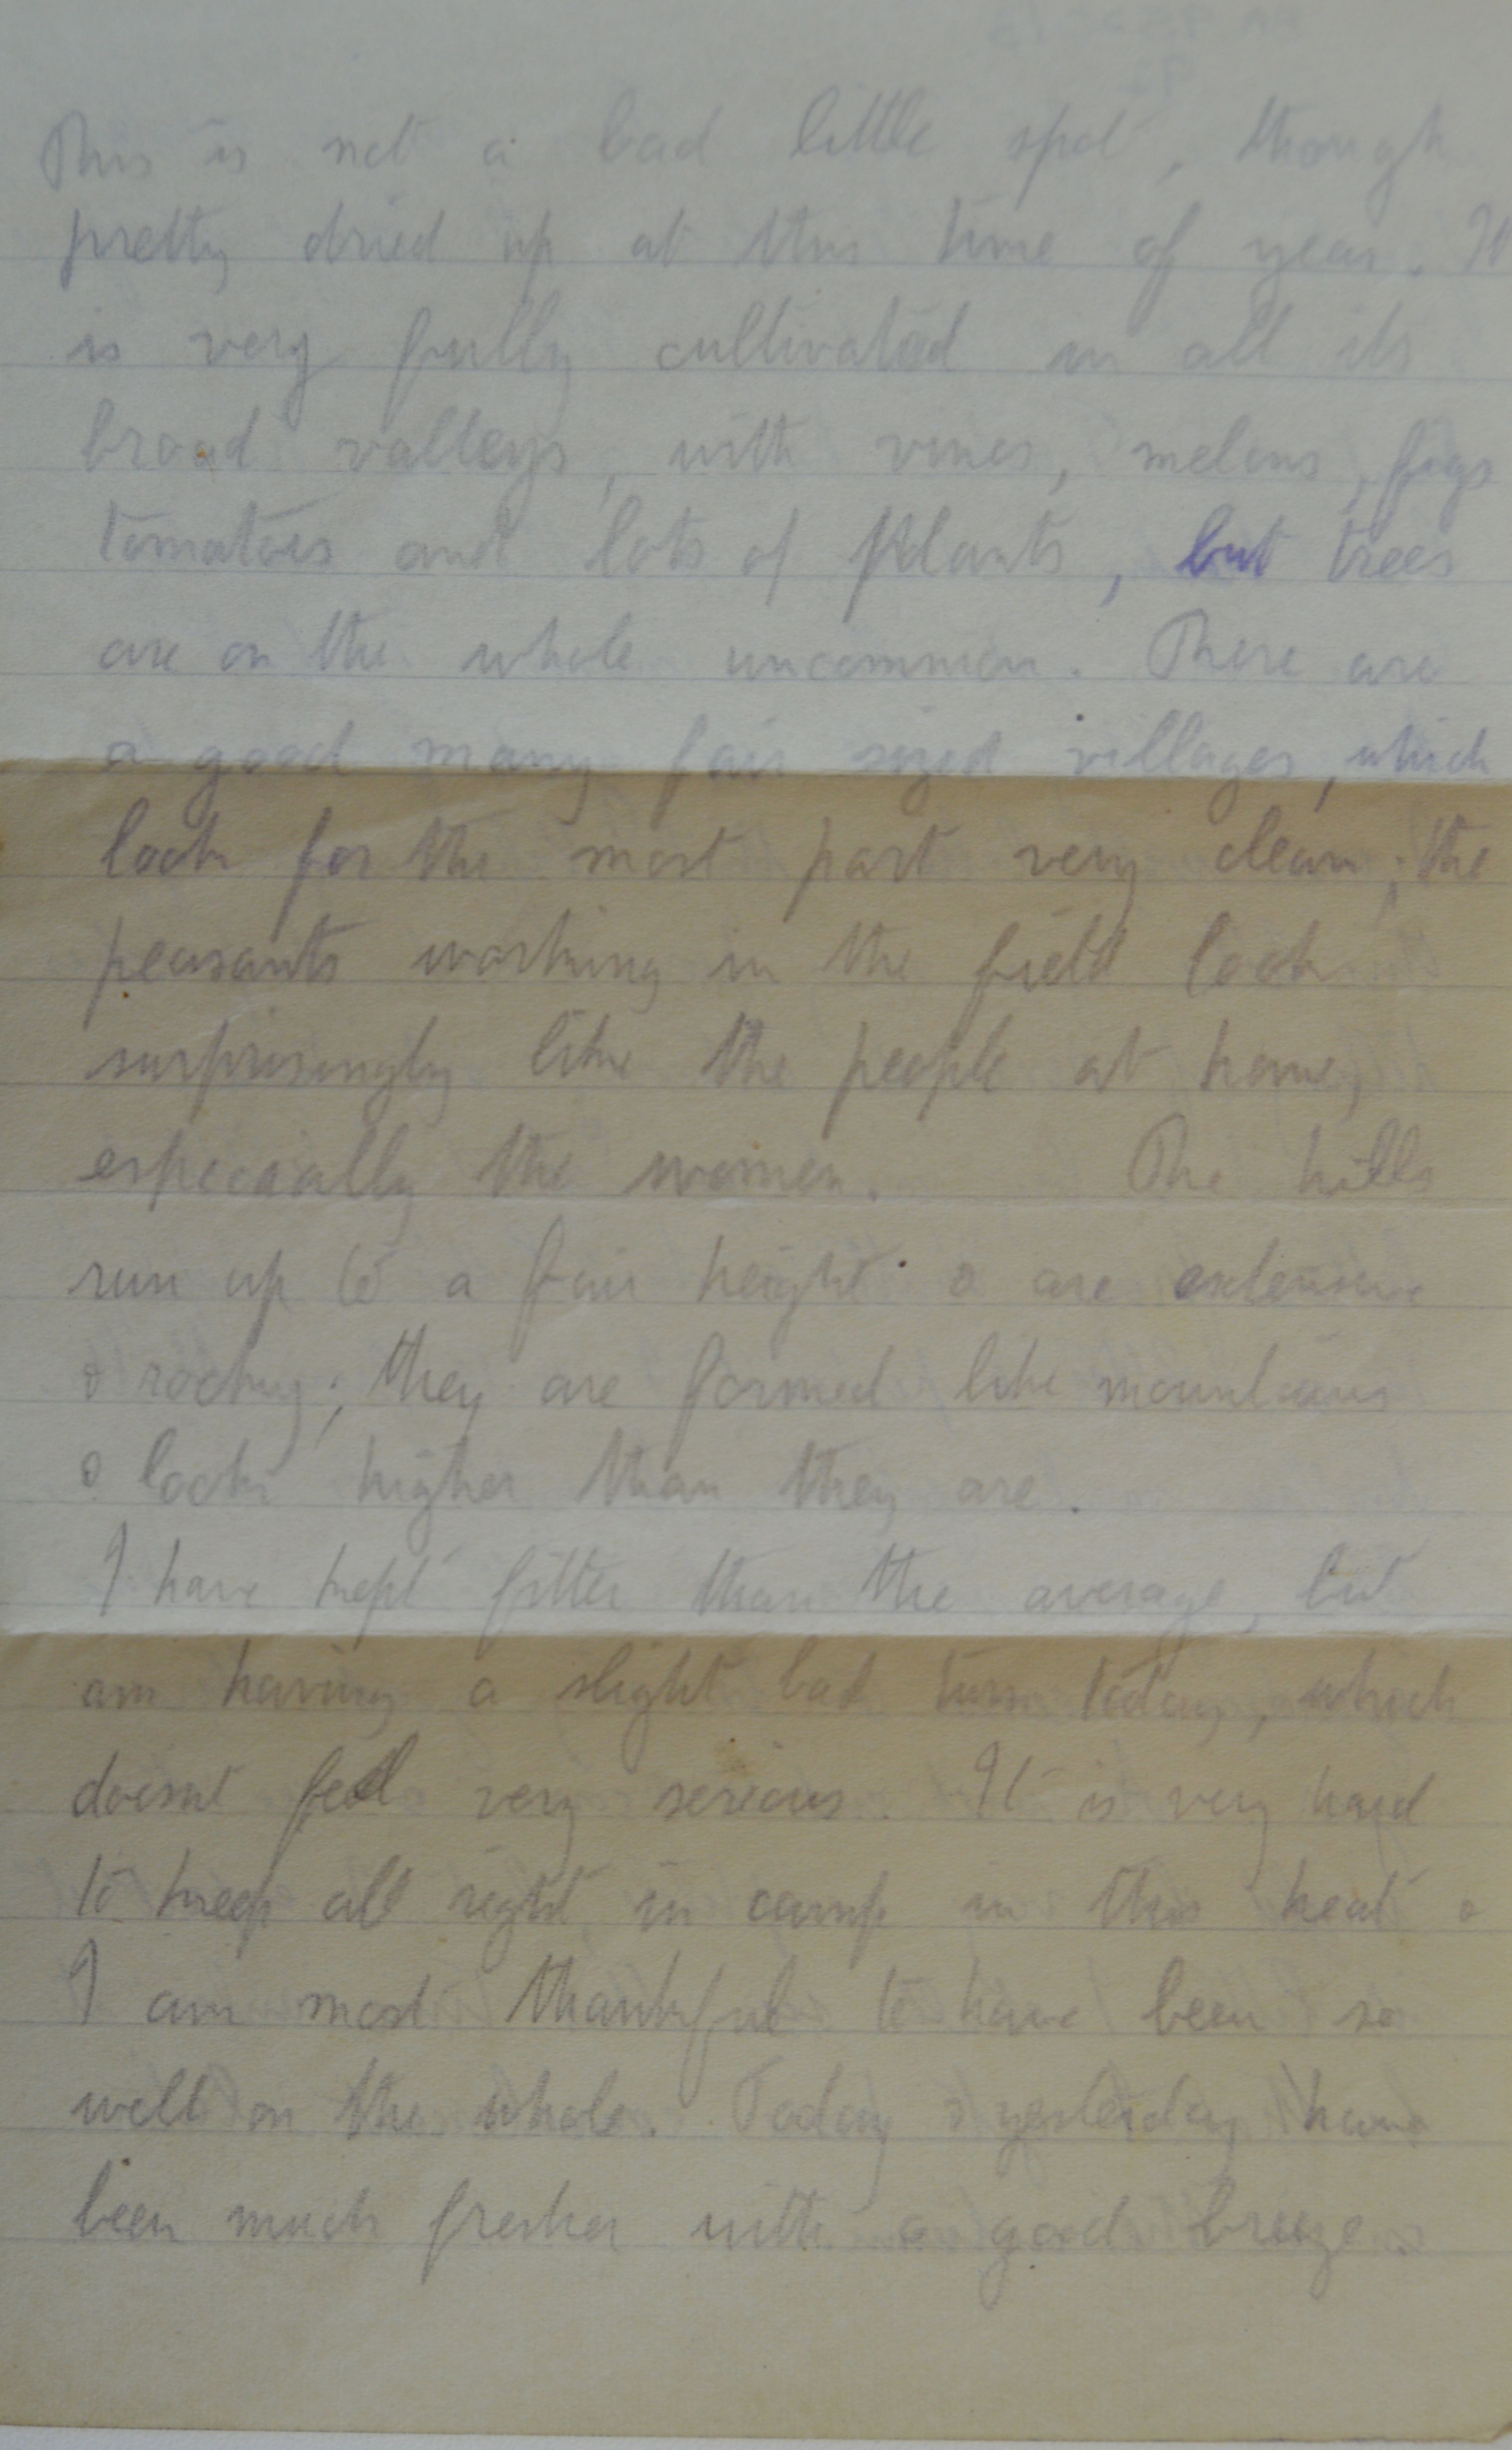 This is not a bad little spot, though
pretty dried up at this time of year. It
is very fully cultivated in all its
broad valleys, with vines, melons, figs
tomatoes and lots of plants, but trees
are on the whole uncommon. There are
a good many fair sized villages, which
look for the most part very clean; the
peasants working in the field look
surprisingly like the people at home,
especially the women. The hills
run up to a fair height & are extensive
& rocky; they are formed like mountains
& look higher than they are.
I have kept fitter than the average, but
am having a slight bad turn today, which
doesnt feel very serious. It is very hard
to keep all right in camp in this heat &
I am most thankful to have been so
well on the whole. Today & yesterday have
been much fresher with a good breeze.